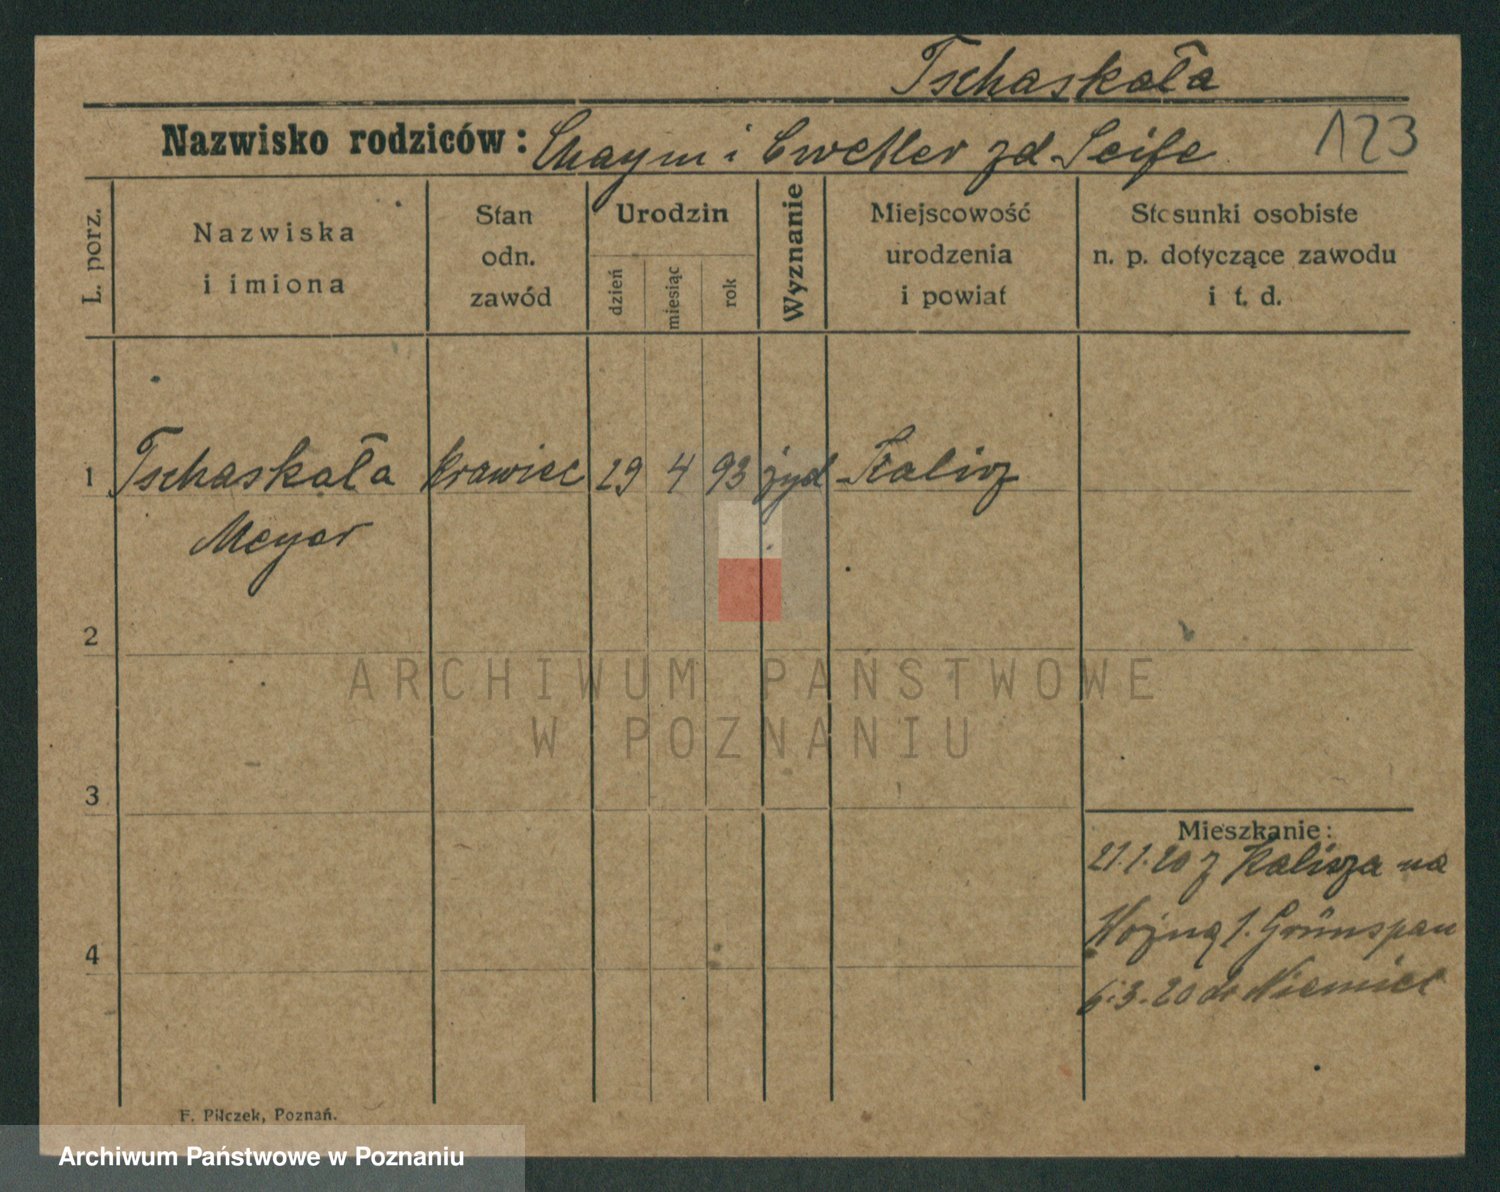 Tschaskała
Nazwisko rodziców: Chaym i Cwetler zd. Seife
123
L. porz.
Nazwiska
i imiona
Stan
odn.
zawód
Urodzin
dzień
miesiąc
rok
Wyznanie
Miejscowość
urodzenia
i powiat
Stosunki osobiste
n. p. dotyczące zawodu
i t. d.
1 Tschaskała krawiec 29 4 93 żyd Kalisz
Meyer
2
ARCHIWUM PAŃSTWOWE
W POZNANIU
3
Mieszkanie:
21.1.20 z Kalisza na
4
Woźną 1. Grünspan
6.3.20 do Niemiec
F. Pilczek, Poznań.
Archiwum Państwowe w Poznaniu